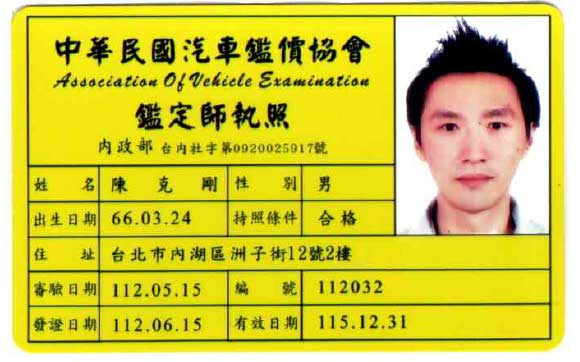 中華民國汽車鑑價協會
Association Of Vehicle Examination
鑑定師執照
內政部 台內社字第0920025917號
姓名 陳克剛 性別 男
出生日期 66.03.24 持照條件 合格
住址 台北市內湖區洲子街12號2樓
審驗日期 112.05.15 編號 112032
發證日期 112.06.15 有效日期 115.12.31